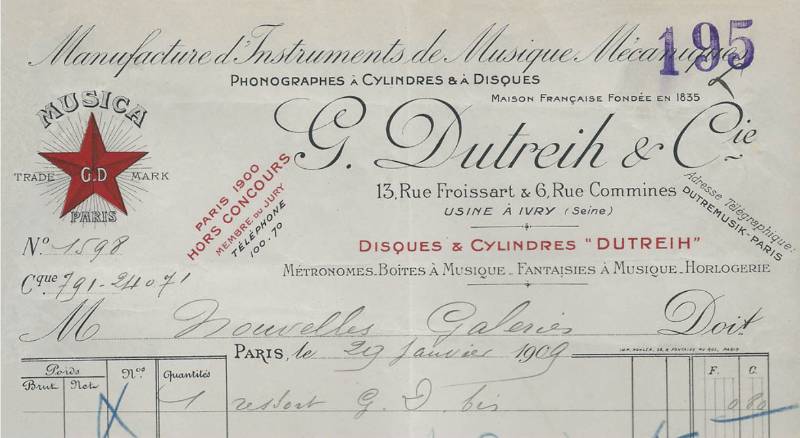 Manufacture d'Instruments de Musique Mécanique
195
Phonographes à Cylindres & à Disques
Maison Française Fondée en 1835
MUSICA
G. Dutreih & Cie
TRADE G.D MARK
PARIS
PARIS 1900
HORS CONCOURS
MEMBRE DU JURY
TÉLÉPHONE
100.70
13, Rue Froissart & 6, Rue Commines
USINE À IVRY (Seine)
Adresse Télégraphique:
DUTREMUSIK-PARIS
Nº 1598
DISQUES & CYLINDRES "DUTREIH"
Cque 791-24071
MÉTRONOMES_BOÎTES À MUSIQUE_FANTAISIES À MUSIQUE_HORLOGERIE
M Nouvelles Galeries Doit
PARIS, le 29 Janvier 1909
Poids Nos Quantités F. C.
Brut Net
1 ressort G. D. bis 0 80